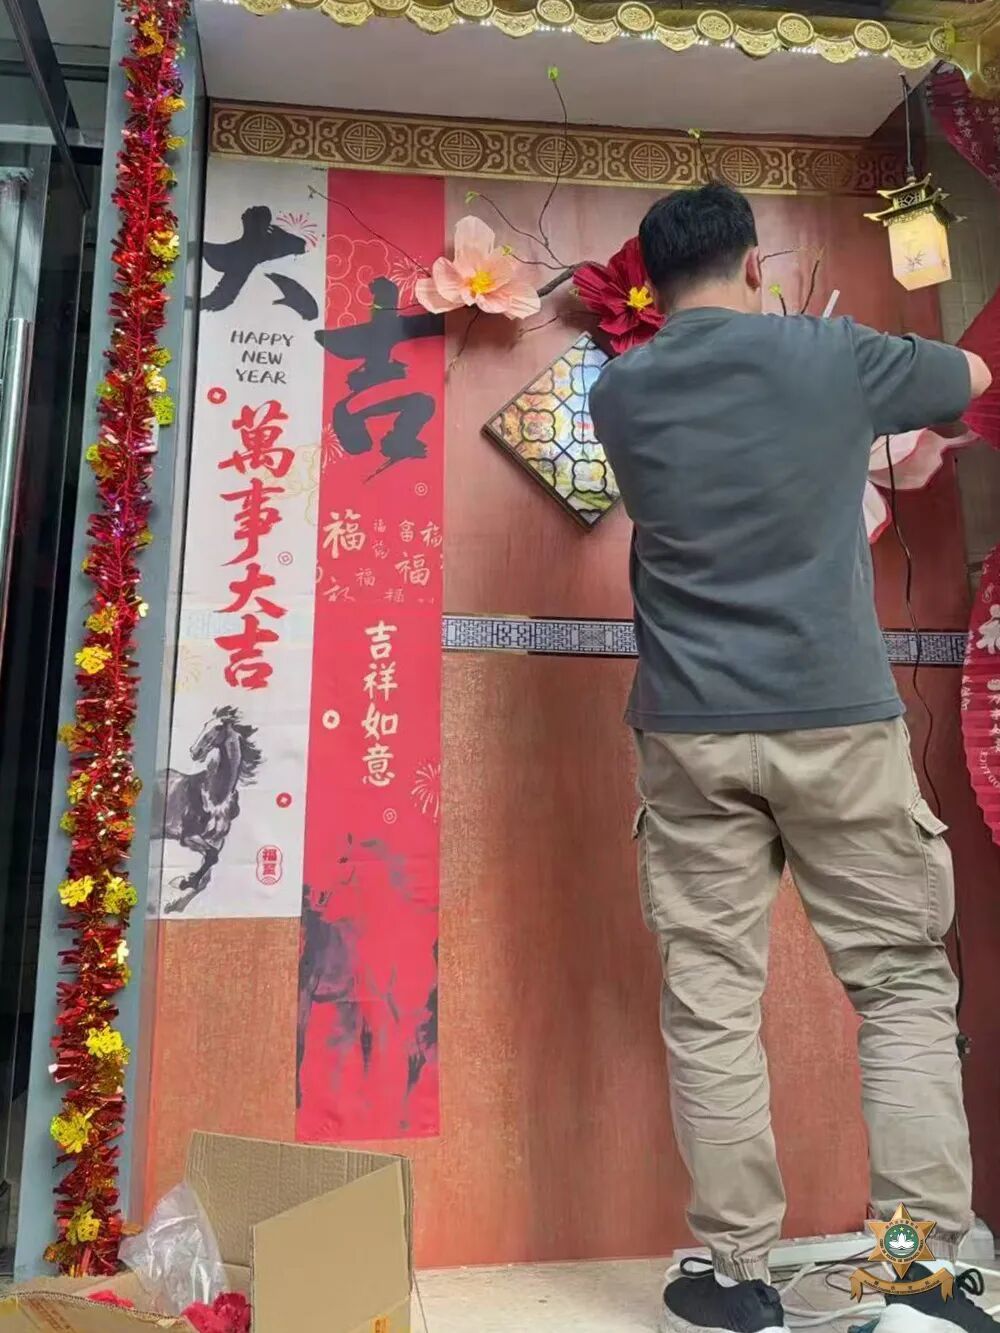 大吉
HAPPY
NEW
YEAR
萬事大吉
福 福 福 福 福 福
吉祥如意